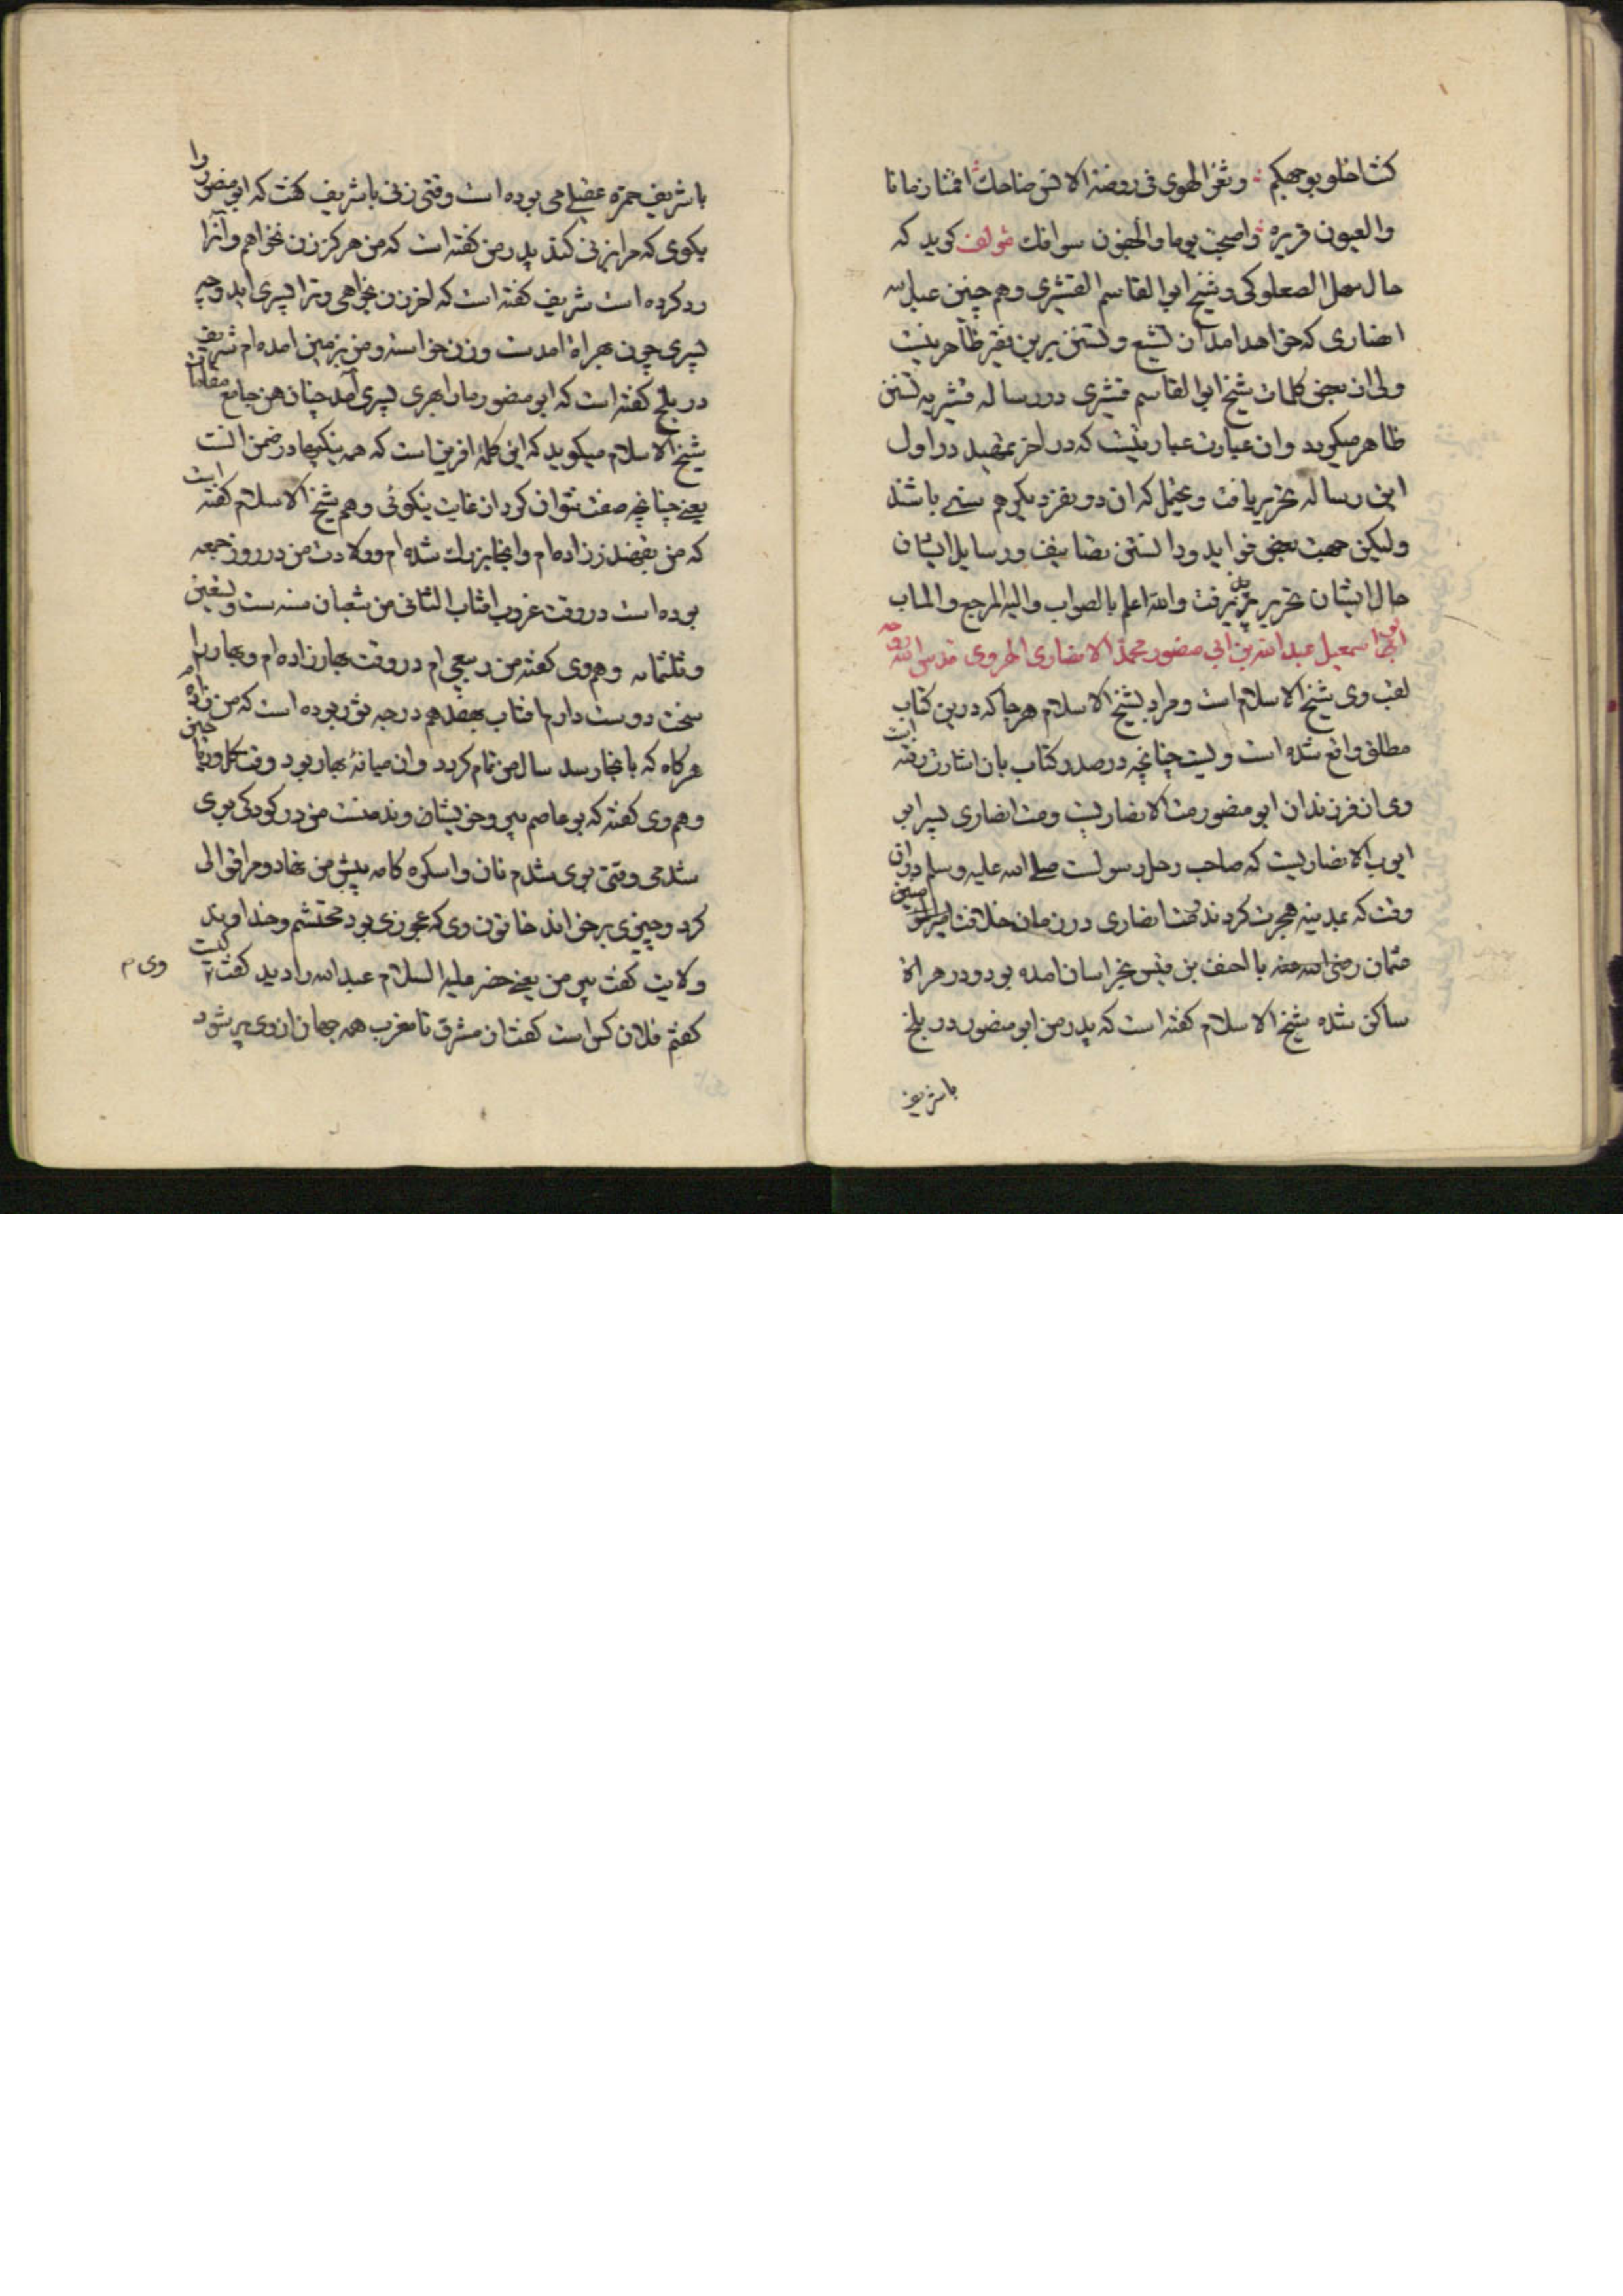 كنت اخلو بوجهكم وثغر الهوى فى روضة الانس ضاحك اقمنا زمانا
والعيون قريره واصبحت يوما والجفون سوافك مؤلف كويد كه
حال سهل الصعلوكى و شيخ ابو القاسم القشيرى و هم چنين عبد الله
انصارى كه خواهد امدان تشيع و تسنن برين فقير ظاهر نيست
ولى از بعضى كلمات شيخ ابو القاسم قشيرى در رساله قشريه تسنن
ظاهر ميكويد و ان عبارت عباريتست كه در اخر تمهيد در اول
اين رساله تحرير يافت و يحتمل كه ان دو نفر ديكر هم سنى باشند
وليكن جهت بعضى فوايد و دانستن تصانيف و رسايل ايشان
حال ايشان تحرير پذيرفت والله اعلم بالصواب واليه المرجع والماب
ابو اسمعيل عبد الله بن ابى منصور محمد الانصارى الهروى قدس الله روحه
لقب وى شيخ الاسلام است و مراد بشيخ الاسلام هرجا كه درين كتاب
مطلق واقع شده است ويست چنانچه در صدر كتاب بان اشارت رفته است
وى از فرزندان ابو منصور مت الانصاريست و مت انصارى پسر ابو
ايوب الانصاريست كه صاحب رحل رسولست صلى الله عليه وسلم در ان
وقت كه بمدينه هجرت كردند مت انصارى در زمان خلافت امير المومنين
عثمان رضى الله عنه با احنف بن قيس بخراسان امده بود و در هراة
ساكن شده شيخ الاسلام كفته است كه پدر من ابو منصور در بلخ
با شريف
با شريف حمزه عقيلى مى بوده است وقتى زنى با شريف كفت كه ابو منصور را
بكوى كه مرا بزنى كند پدر من كفته است كه من هركز زن نخواهم و آنرا
رد كرده است شريف كفته است كه اخر زن بخواهى و ترا پسرى ايد و چه
پسرى چون بهراة امدست و زن خواسته و من بزمين امده ام شريف
در بلخ كفته است كه ابو منصور مارا بهرى پسرى آمد چنان هن جامع مقامات
شيخ الاسلام ميكويد كه اين كلمۀ افرين است كه همه نيكيها در ضمن انست
يعنى چنانچه صفت نتوان كرد از غايت نيكوئى و هم شيخ الاسلام كفته است
كه من بقهندز زاده ام و انجا بزرك شده ام و ولادت من در روز جمعه
بوده است در وقت غروب افتاب الثانى من شعبان سنه ست و تسعين
و ثلثمائه و هم وى كفته من ربيعى ام در وقت بهار زاده ام و بهار را
سخت دوست دارم افتاب بهفدهم درجه ثور بوده است كه من زاده ام
هركاه كه بانجا رسد سال من تمام كردد و ان ميانۀ بهار بود وقت كل و رياحين
و هم وى كفته كه بو عاصم پير و خويشاوند منست من در كودكى بوى
شدمى وقتى بوى شدم نان و اسكره كامه پيش من نهاد و مرا قوالى
كرد و چيزى برخواند خاتون وى كه عجوزى بود محتشم و خداوند
ولايت كفت پير من يعنى خضر عليه السلام عبد الله را ديد كفت كيست
وى م
كفتم فلان كس است كفت از مشرق تا مغرب همه جهان از وى پر شود